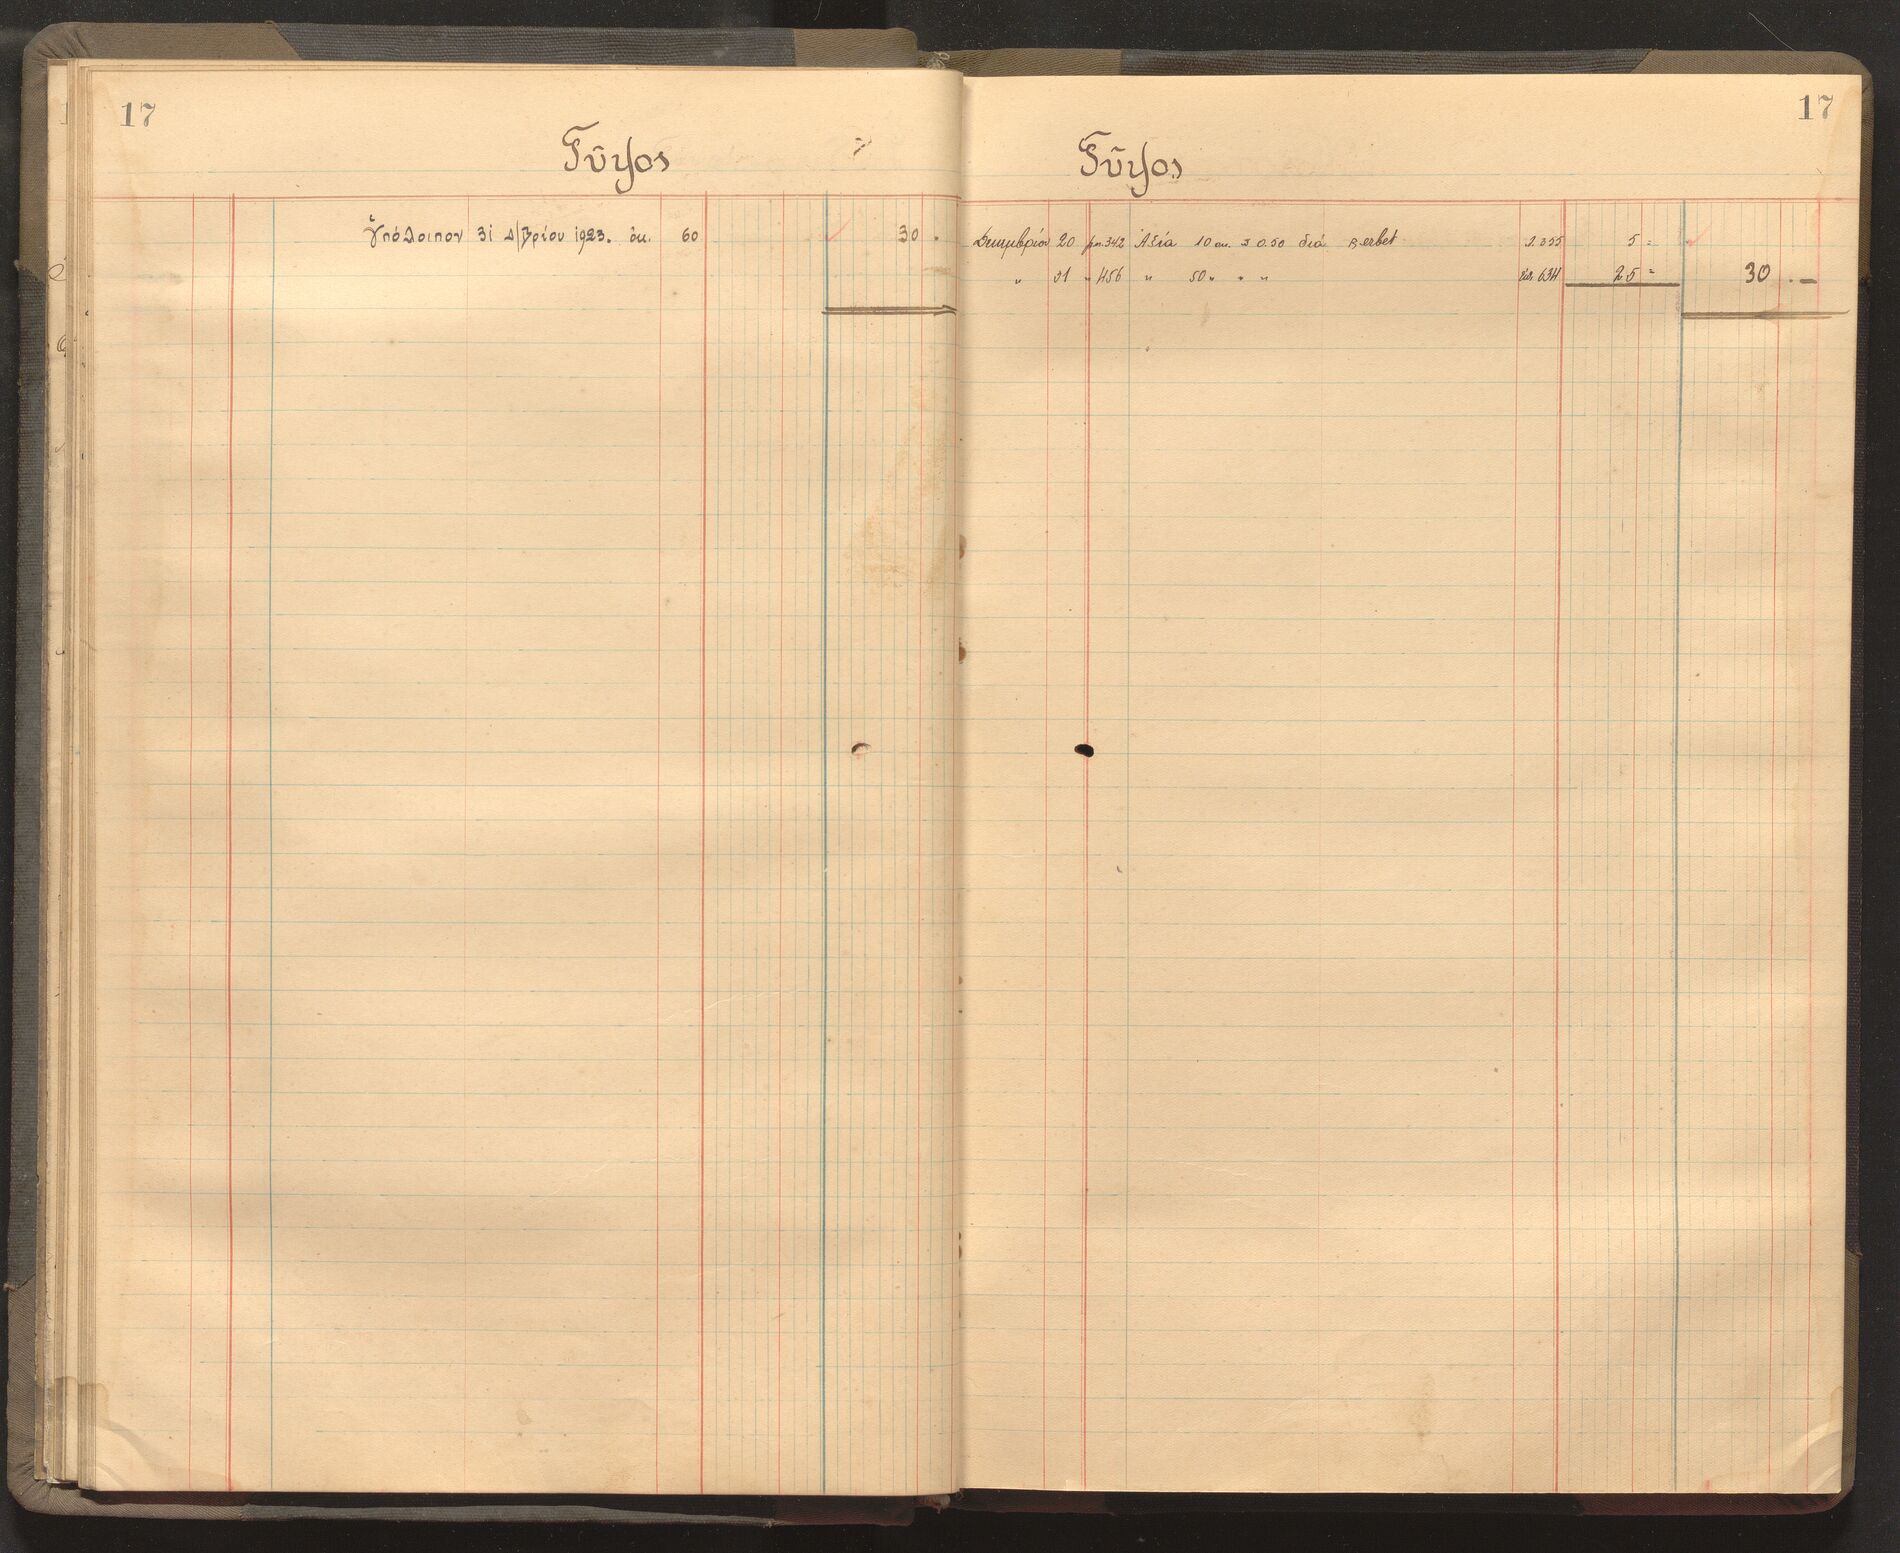 17
Γύψος
Ὑπόλοιπον 31 Δ/βρίου 1923. ὀκ. 60 30 .
17
Γύψος
Δεκεμβρίου 20 342 Ἀξία 10 ὀκ. 0.50 διά Berbet 2.355 5 =
" 31 " 456 " 50 " " " 634 25 = 30 . -